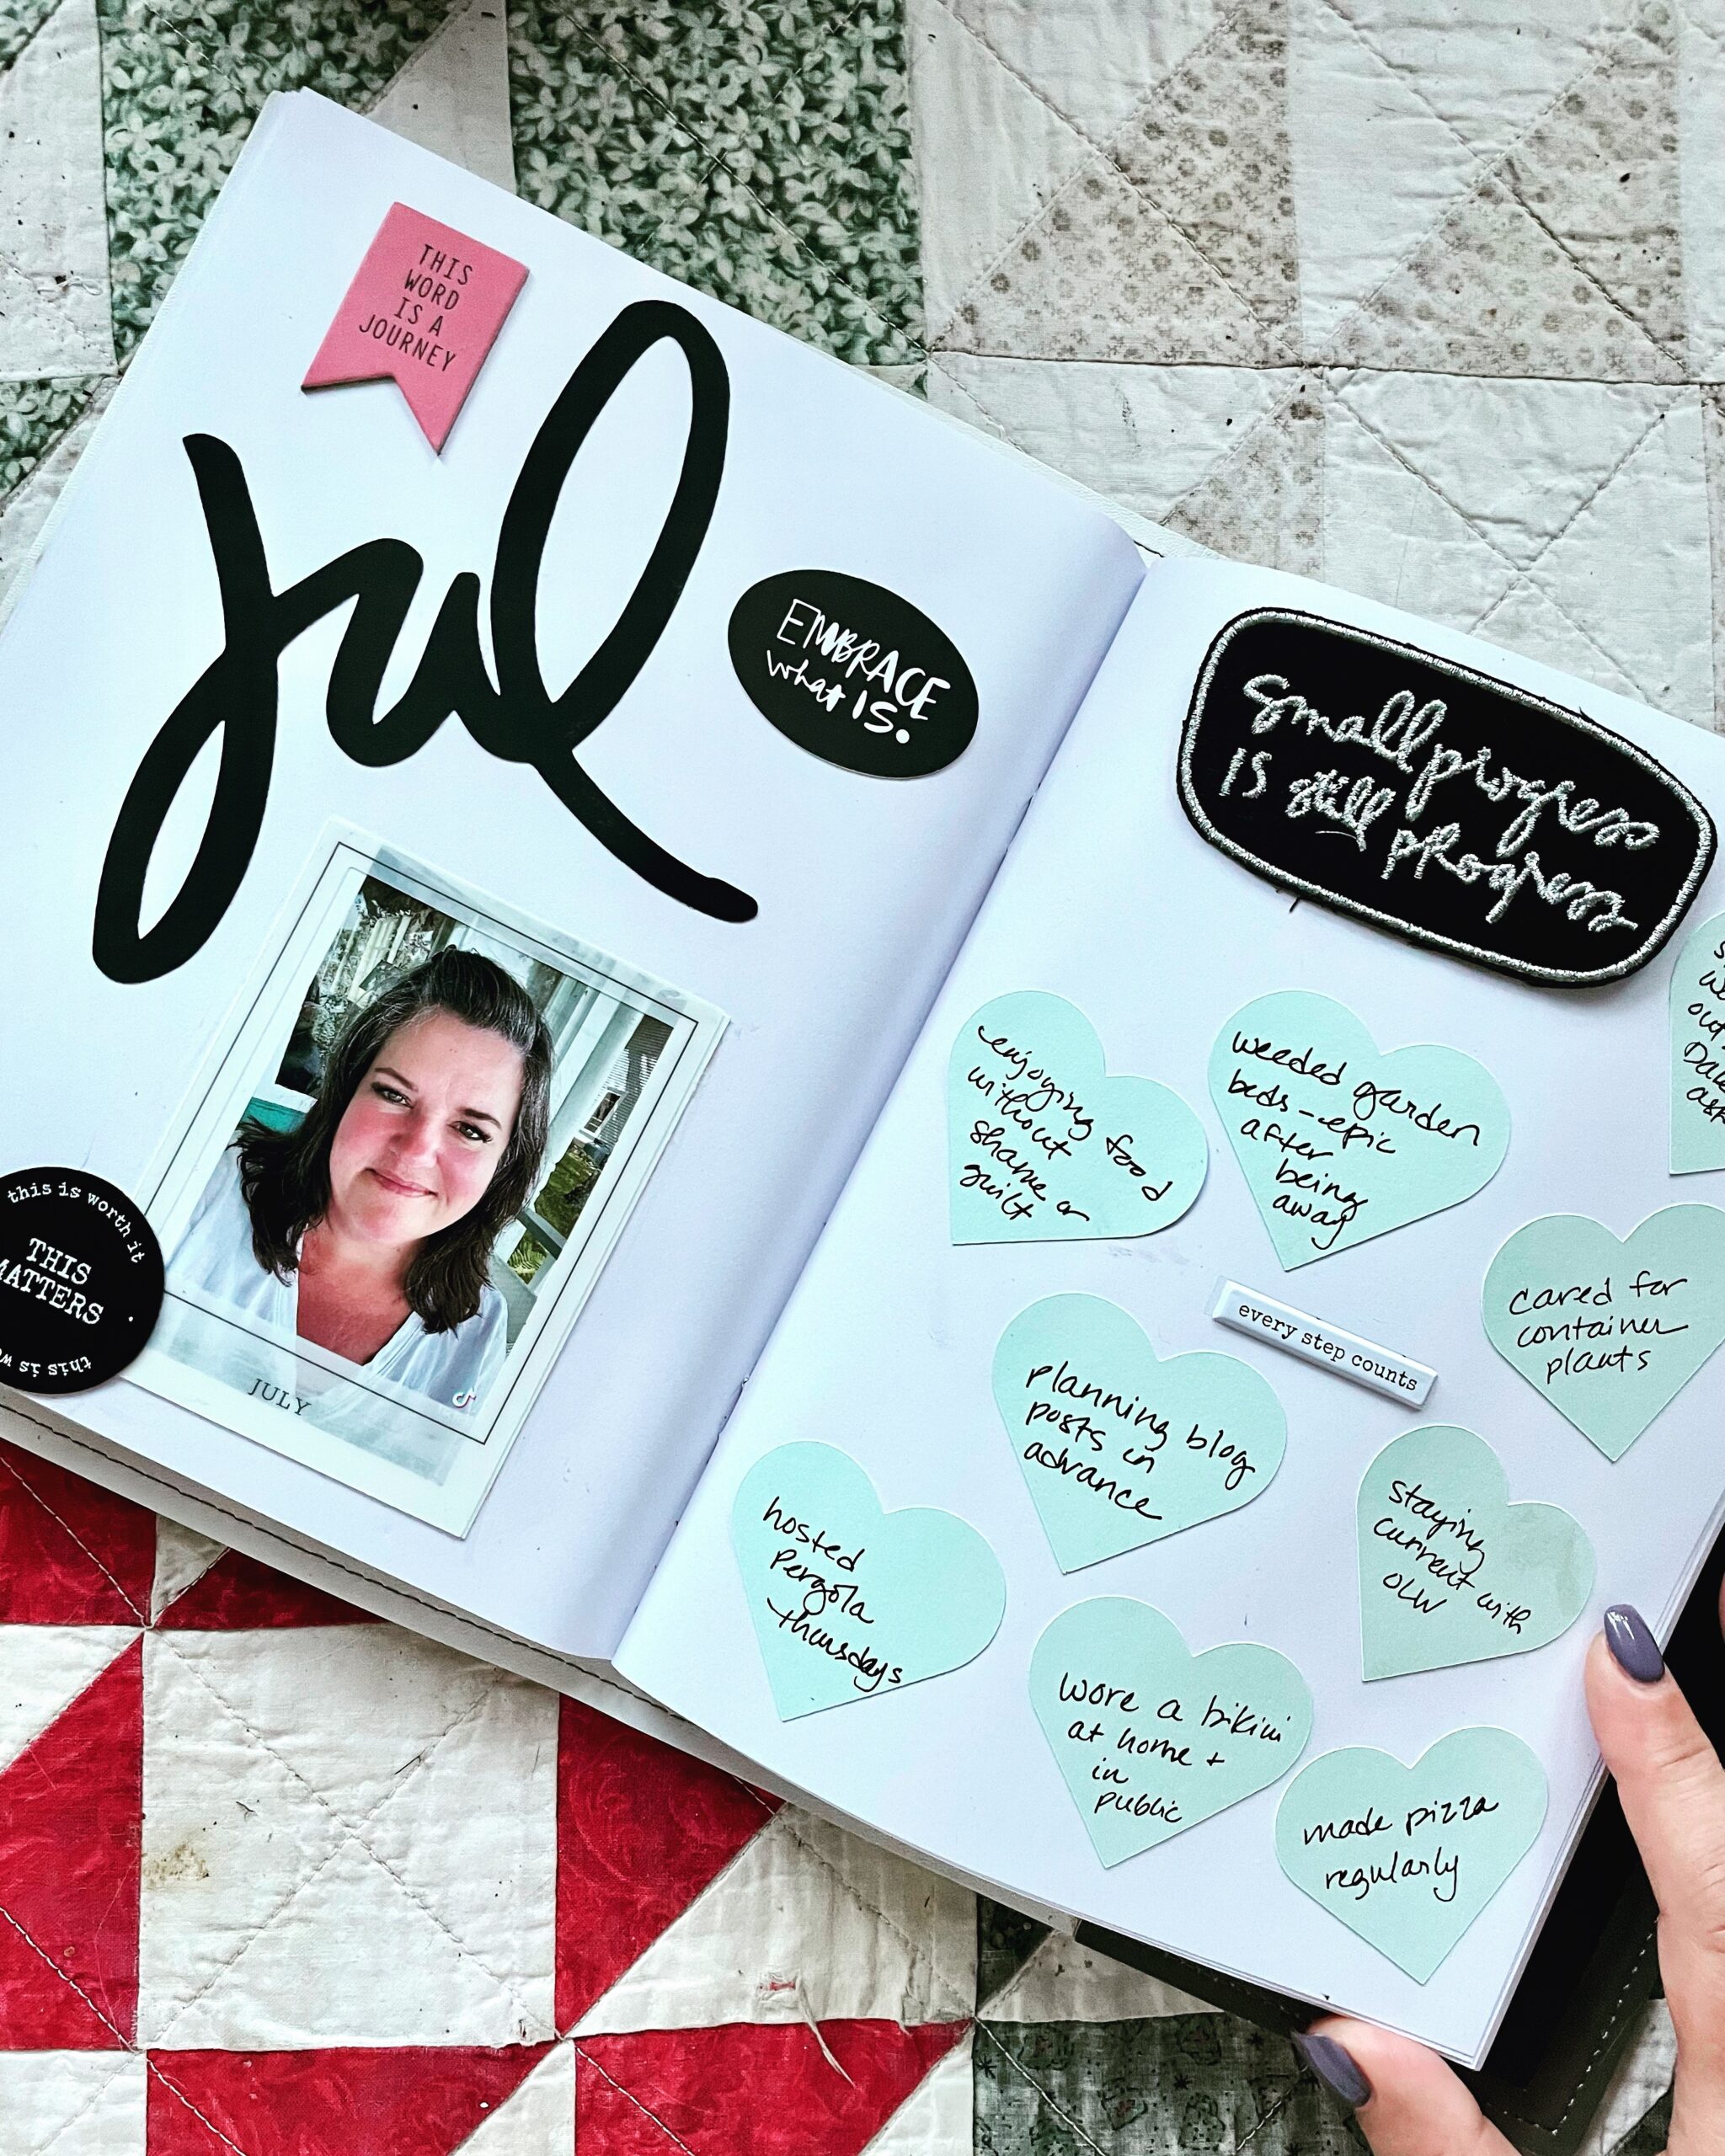 THIS
WORD
IS A
JOURNEY
jul
EMBRACE
what IS.
JULY
this is worth it
THIS
MATTERS
this is
small progress
is still progress
enjoying food
without
shame or
guilt
weeded garden
beds - epic
after
being
away
every step counts
cared for
container
plants
planning blog
posts in
advance
staying
current with
OLW
hosted
Pergola
Thursdays
wore a bikini
at home +
in
public
made pizza
regularly